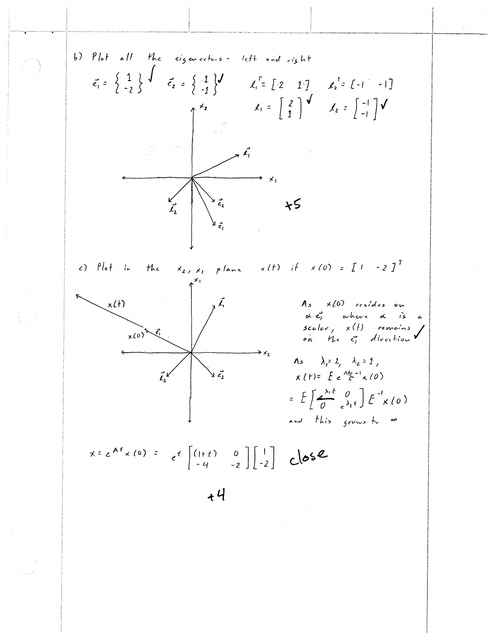 b) Plot all the eigenvectors - left and right
e⃗₁ = { 1 -2 } ✓ e⃗₂ = { 1 -1 } ✓ l₁ᵀ = [2 1] l₂ᵀ = [-1 -1]
l₁ = [ 2 1 ] ✓ l₂ = [ -1 -1 ] ✓
x₂
l⃗₁
x₁
l⃗₂ e⃗₂
e⃗₁
+5
c) Plot in the x₂, x₁ plane x(t) if x(0) = [1 -2]ᵀ
x₁
x(t)
l⃗₁
x(0) e⃗₁
x₂
l⃗₂ e⃗₂
As x(0) resides on
α e⃗₁ where α is a
scalar, x(t) remains
on the e⃗₁ direction ✓
As λ₁=1, λ₂=1,
x(t) = E e^Λt E⁻¹ x(0)
= E [ e^λ₁t 0 0 e^λ₂t ] E⁻¹ x(0)
and this grows to ∞
x = e^At x(0) = e^t [ (1+t) 0 -4 -2 ] [ 1 -2 ] close
+4